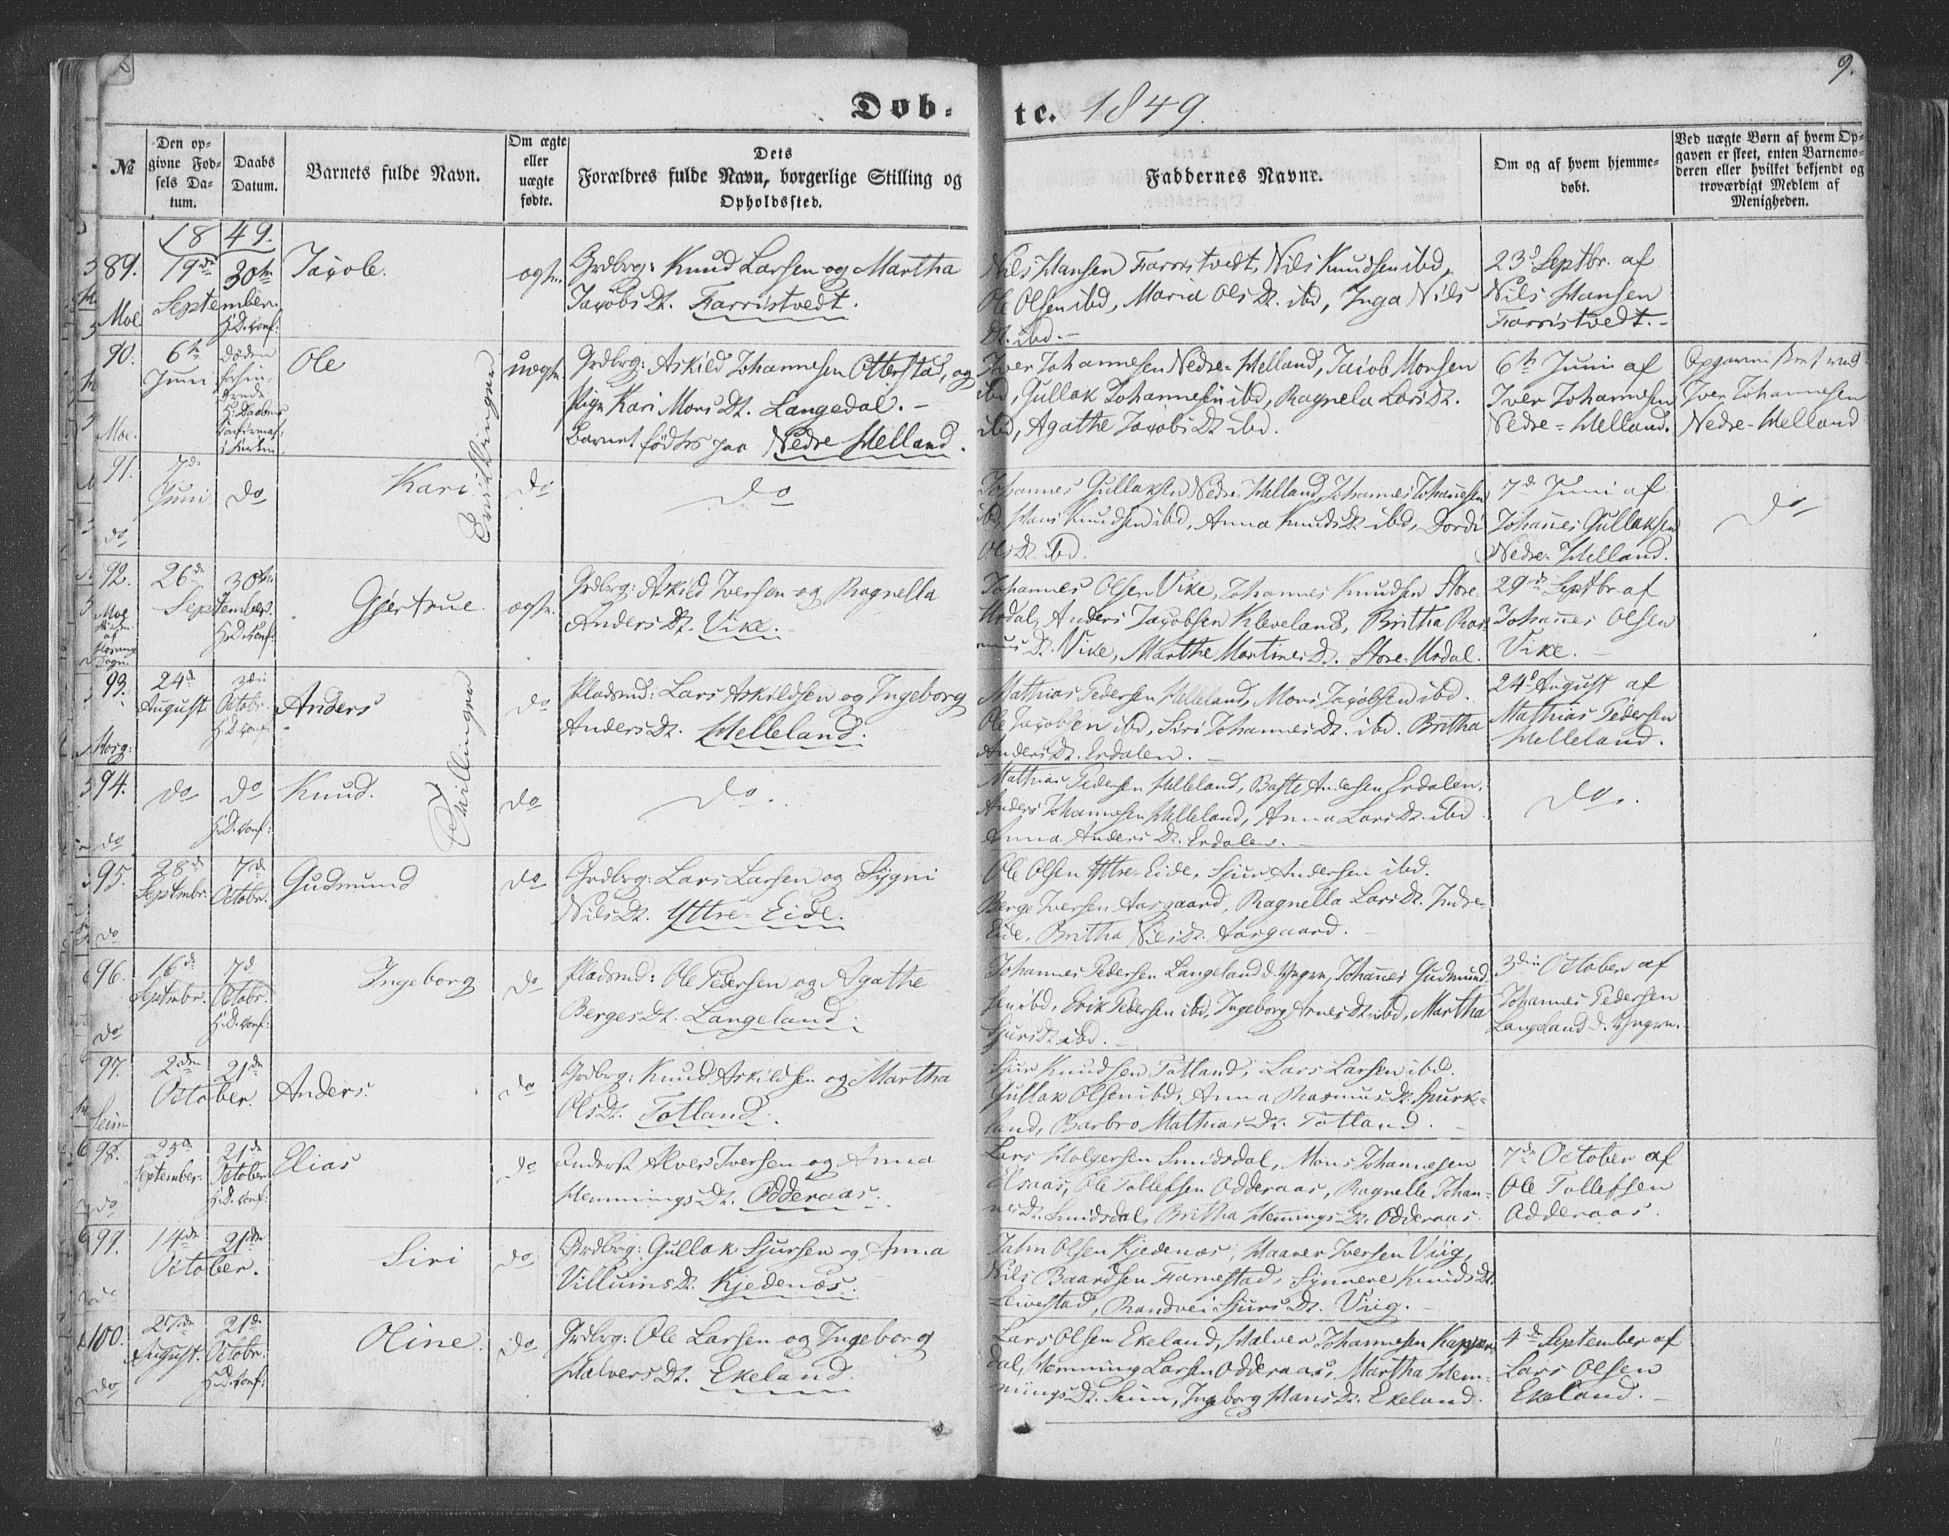 8
9.
Dob-
te. 1849.
№
Den opgivne Fødsels Datum.
Daabs Datum.
Barnets fulde Navn.
Om ægte eller uægte fødte.
Dets
Forældres fulde Navn, borgerlige Stilling og
Opholdssted.
Faddernes Navne.
Om og af hvem hjemmedøbt.
Ved uægte Børn af hvem Opgaven er skeet, enten Barnemoderen eller hvilket bekjendt og troværdigt Medlem af Menigheden.
1849.
89. 19de 30te Jacob. ægte. Grdbrg: Knud Larsen og Martha
Moe September. Jacobs Dt. Farristvedt.
H.D. konf:
Nils Hansen Farristvedt, Nils Knudsen ibd,
Ole Olsen ibd, Maria Ols Dt. ibd, Inga Nils
Dt. ibd.
23d Septbr. af
Nils Hansen
Farristvedt.
90. 6te Juni Ole uægte. Grdbrg: Askild Johannesen Otterstad, og
Pige Kari Mons Dt. Langedal.
Moe. Barnet født paa Nedre Helland.
Døden forhindrede
H. Daabens
Konfirmat.
i Kirken.
Iver Johannesen Nedre-Helland, Jacob Monsen
ibd, Gullak Johannesen ibd, Ragnela Lars Dt.
ibd, Agathe Jacobs Dt ibd.
6te Juni af
Iver Johannesen
Nedre-Helland.
Iver Johannesen
Nedre-Helland
Tvillinger
91. 7de Juni do Kari do do
do
Johannes Gullaksen Nedre-Helland, Johannes Johannesen
ibd, Hans Knudsen ibd, Anna Knuds Dt ibd, Dordi
Ols Dt. ibd.
7de Juni af
Johannes Gullaksen
Nedre-Helland.
do
92. 26de 30te Gjertrue. ægte. Grdbrg: Askild Iversen og Ragnella
Moe September. Anders Dt. Vike.
H.D. konf:
Johannes Olsen Vike, Johannes Knudsen Store-
Urdal, Anders Jacobsen Kleveland, Britha Ras-
mus Dt. Vike, Marthe Martines Dt. Store-Urdal.
29de Septbr af
Johannes Olsen
Vike.
93. 24de August 3die Octobr. Anders do Pladsmd: Lars Askildsen og Ingeborg
H.D. konf: Anders Dt. Helleland.
Mathias Pedersen Helleland, Mons Jacobsen ibd.
Ole Jacobsen ibd, Siri Johannes Dt. ibd. Britha
Anders Dt. Erdalen.
24de August af
Mathias Pedersen
Helleland.
Tvillinger
94. do do Knud. do do.
do H.D. konf:
Mathias Pedersen Helleland, Baste Andersen Erdalen,
Anders Johannesen Helleland, Anna Lars Dt. ibd
Anna Anders Dt. Erdalen.
do.
95. 28de Septembr. 7de Octobr. Gudmund do Grdbrg: Lars Larsen og Sygni
do Nils Dt. Yttre-Eide.
Ole Olsen Yttre-Eide, Sjur Andersen ibd.
Berge Iversen Aasgaard, Ragnella Lars Dt. Indre-
Eide, Britha Nils Dt. Aasgaard.
96. 16de Septembr. 7de Octobr. Ingeborg do Pladsmd: Ole Pedersen og Agathe
do H.D. konf: Berges Dt. Langeland.
Johannes Pedersen Langeland d. Yngre, Johannes Gudmund-
sen ibd, Erik Pedersen ibd, Ingeborg Arnes Dt. ibd, Martha
Sjurs Dt ibd.
3die October af
Johannes Pedersen
Langeland d. Yngre.
97. 2den 21de Anders. do Grdbrg: Knud Askildsen og Martha
Seim October. Ols Dt. Totland.
Sjur Knudsen Totland, Lars Larsen ibd.
Gullak Olsen ibd, Anna Rasmus Dt. Spurk-
land, Barbro Mathias Dt. Totland.
98. 25de September. 21de October Elias do Anders Alver Iversen og Anna
do H.D. konf: Hemmings Dt. Odderaas.
Lars Holgersen Smidsdal, Mons Johannesen
Elsaas, Ole Tollefsen Odderaas, Ragnelle Johan-
nes Dt. Smidsdal, Britha Hemmings Dt. Odderaas.
7de October af
Ole Tollefsen
Odderaas.
99. 14de 21de Siri do Grdbrg: Gullak Sjursen og Anna
do October. Villums Dt. Kjedenæs.
Jahn Olsen Kjedenæs, Haaver Iversen Viig,
Nils Baardsen Farnestad, Synneve Knuds Dt.
Leivestad, Randvei Sjurs Dt. Viig.
100. 27de August. 21de Octobr. Oline. do Grdbrg: Ole Larsen og Ingeborg
do H.D. konf: Halvers Dt. Ekeland.
Lars Olsen Ekeland, Halver Johannesen Kappen-
dal, Hemming Larsen Odderaas, Martha Hem-
mings Dt. Seim, Ingeborg Hans Dt. Ekeland.
4de September af
Lars Olsen
Ekeland.